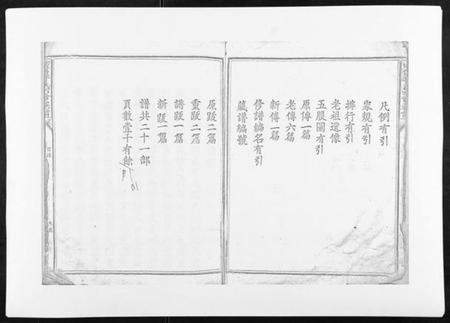 凡例有引
衆規有引
排行有引
老祖遺像
五服圖有引
原傳一篇
老傳六篇
新傳一篇
修譜編名有引
藏譜編號
原跋二篇
重跋二篇
譜跋一篇
新跋一篇
譜共二十一部
頁數壹千有餘